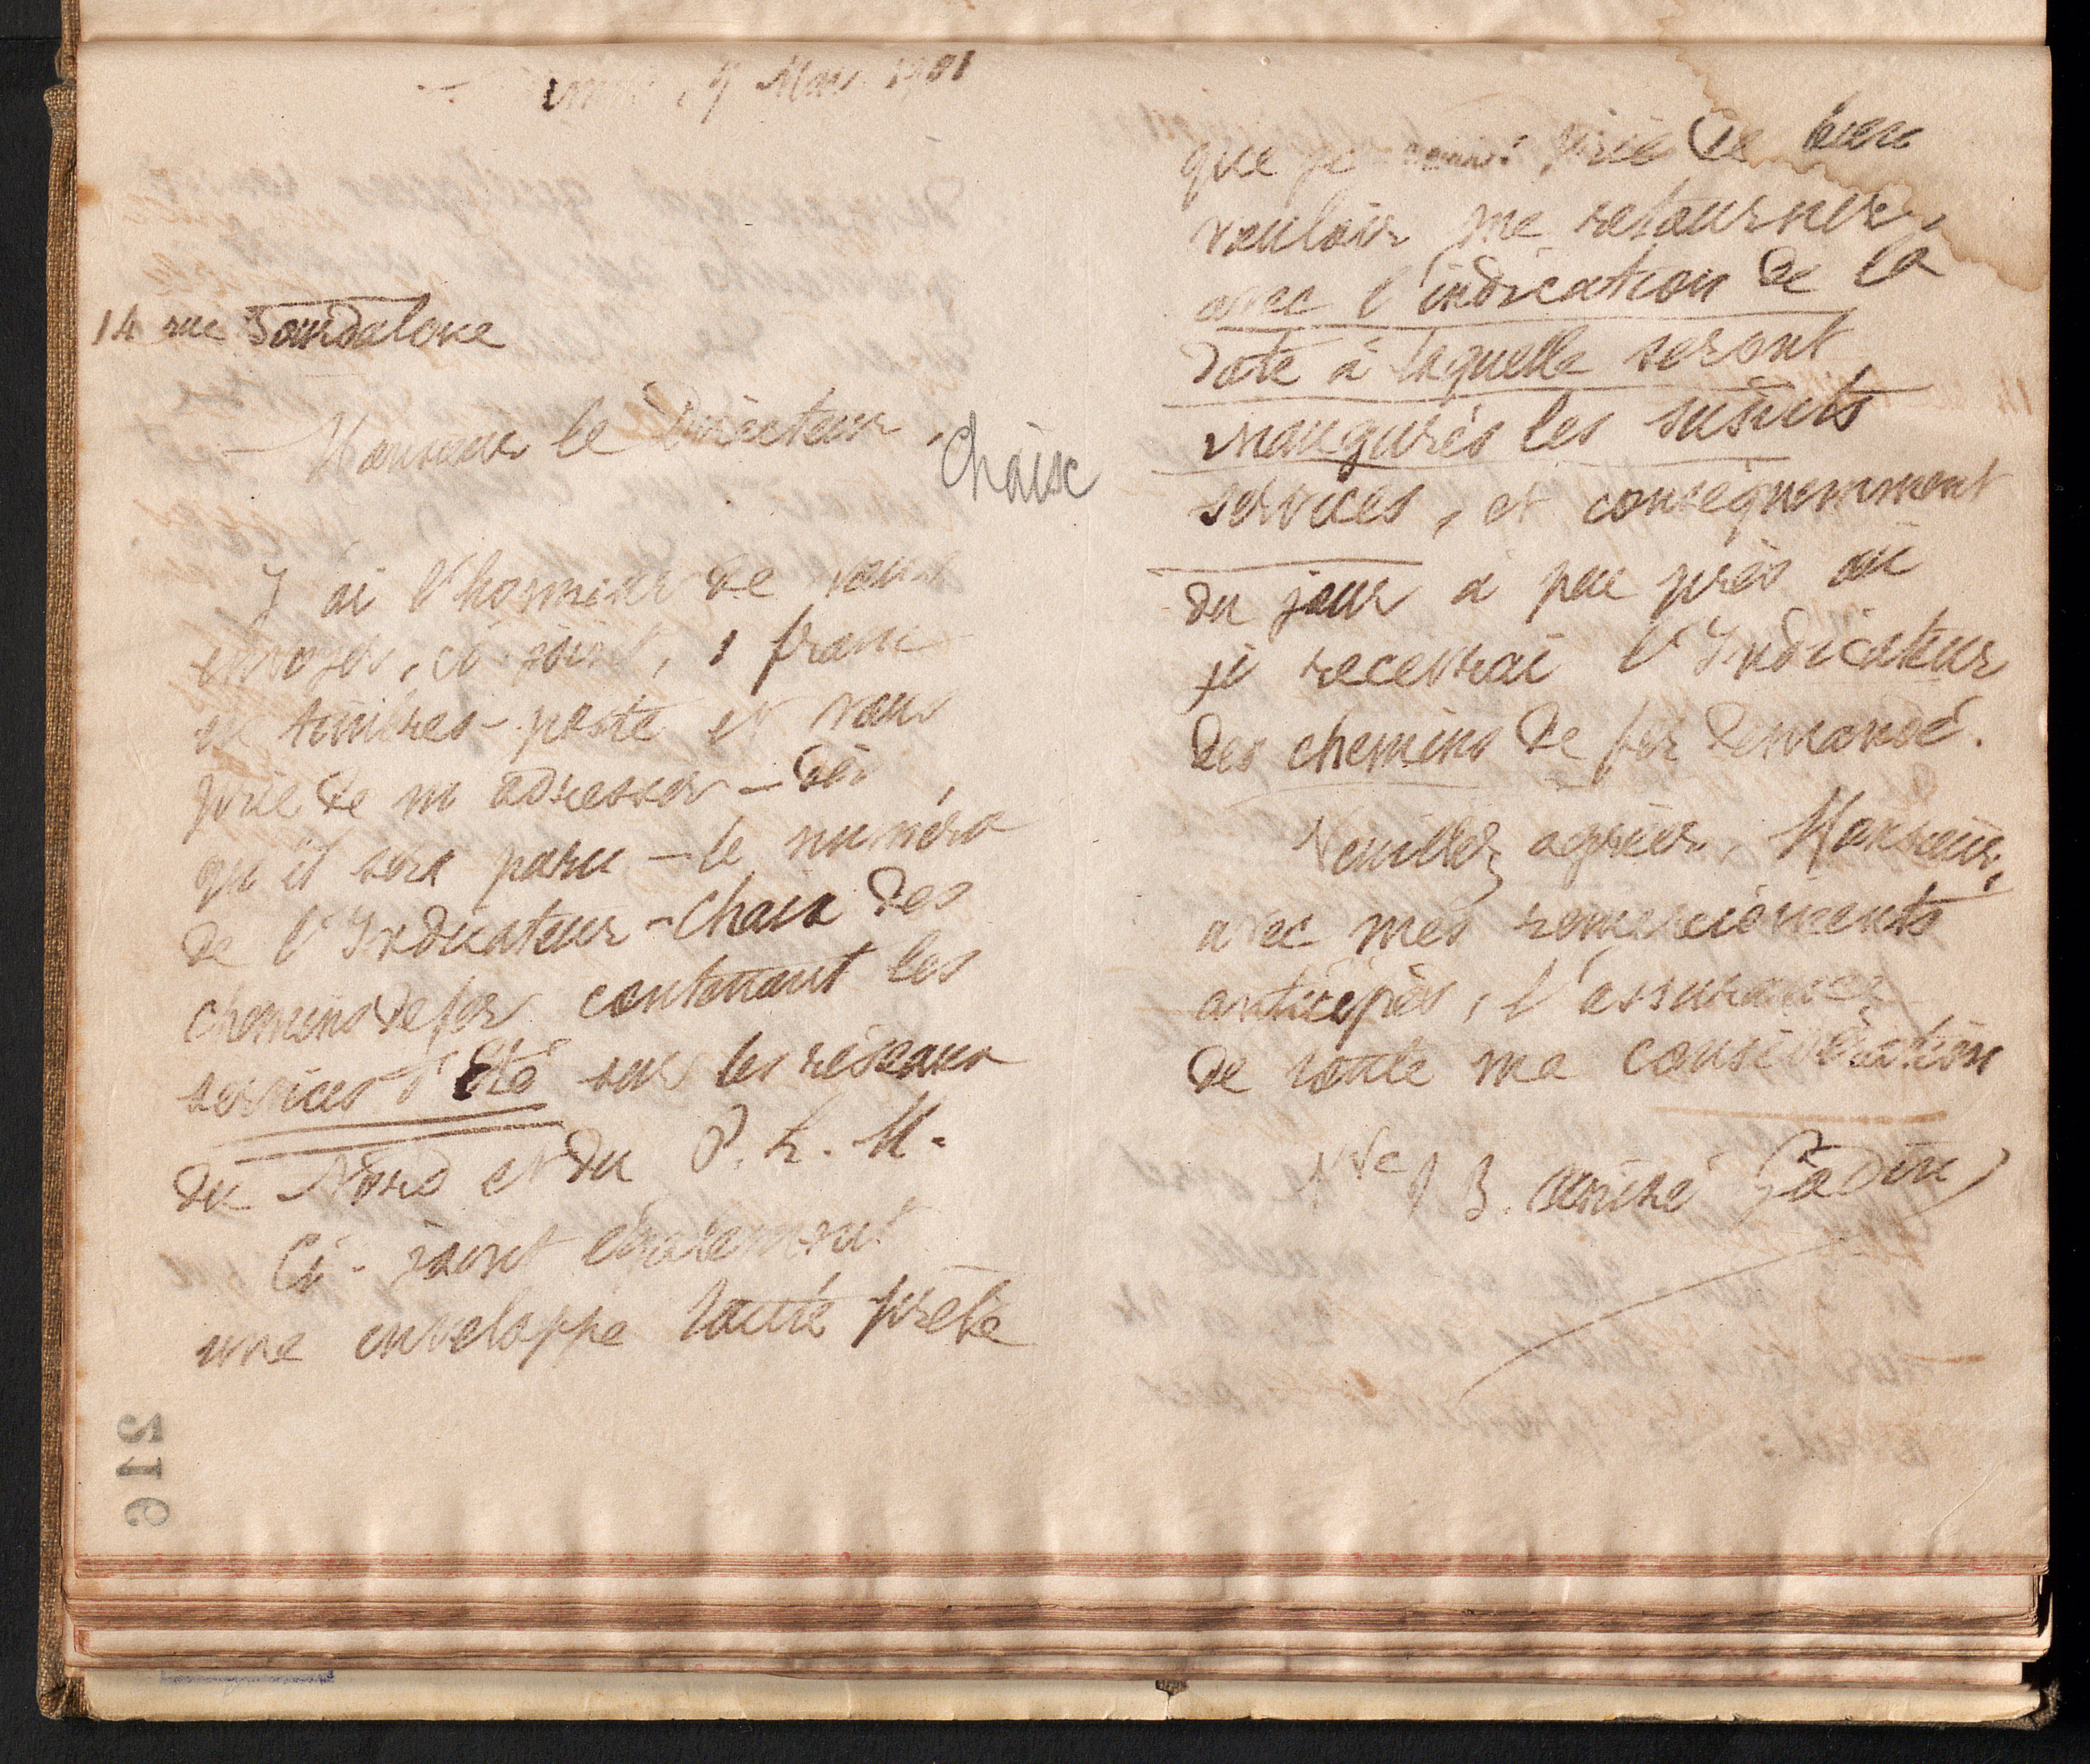 9 Mars 1901
14 rue Fondelone
Monsieur le Directeur,
Chaix
J'ai l'honneur de vous
envoyer, ci-joint, 1 franc
en timbres-poste et vous
prie de m'adresser - dès
qu'il sera paru - le numéro
de l'Indicateur-Chaix des
chemins de fer contenant les
services d'Eté sur les réseaux
du Nord et du P. L. M.
Ci-joint également
une enveloppe toute prête
que je vous prie de bien
vouloir me retourner,
avec l'indication de la
date à laquelle seront
inaugurés les susdits
services, et conséquemment
du jour à peu près où
je recevrai l'Indicateur
des chemins de fer demandé.
Veuillez agréer, Monsieur,
avec mes remerciements
anticipés, l'assurance
de toute ma considération
Vve J B. André Godin
216